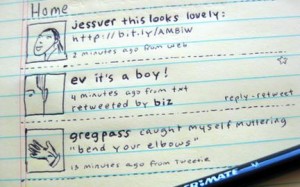 Home
jessver this looks lovely:
http://bit.ly/AMBIW
2 minutes ago from web
ev it's a boy!
4 minutes ago from txt
retweeted by biz
reply-retweet
gregpass caught myself muttering
"bend your elbows"
13 minutes ago from Tweetie